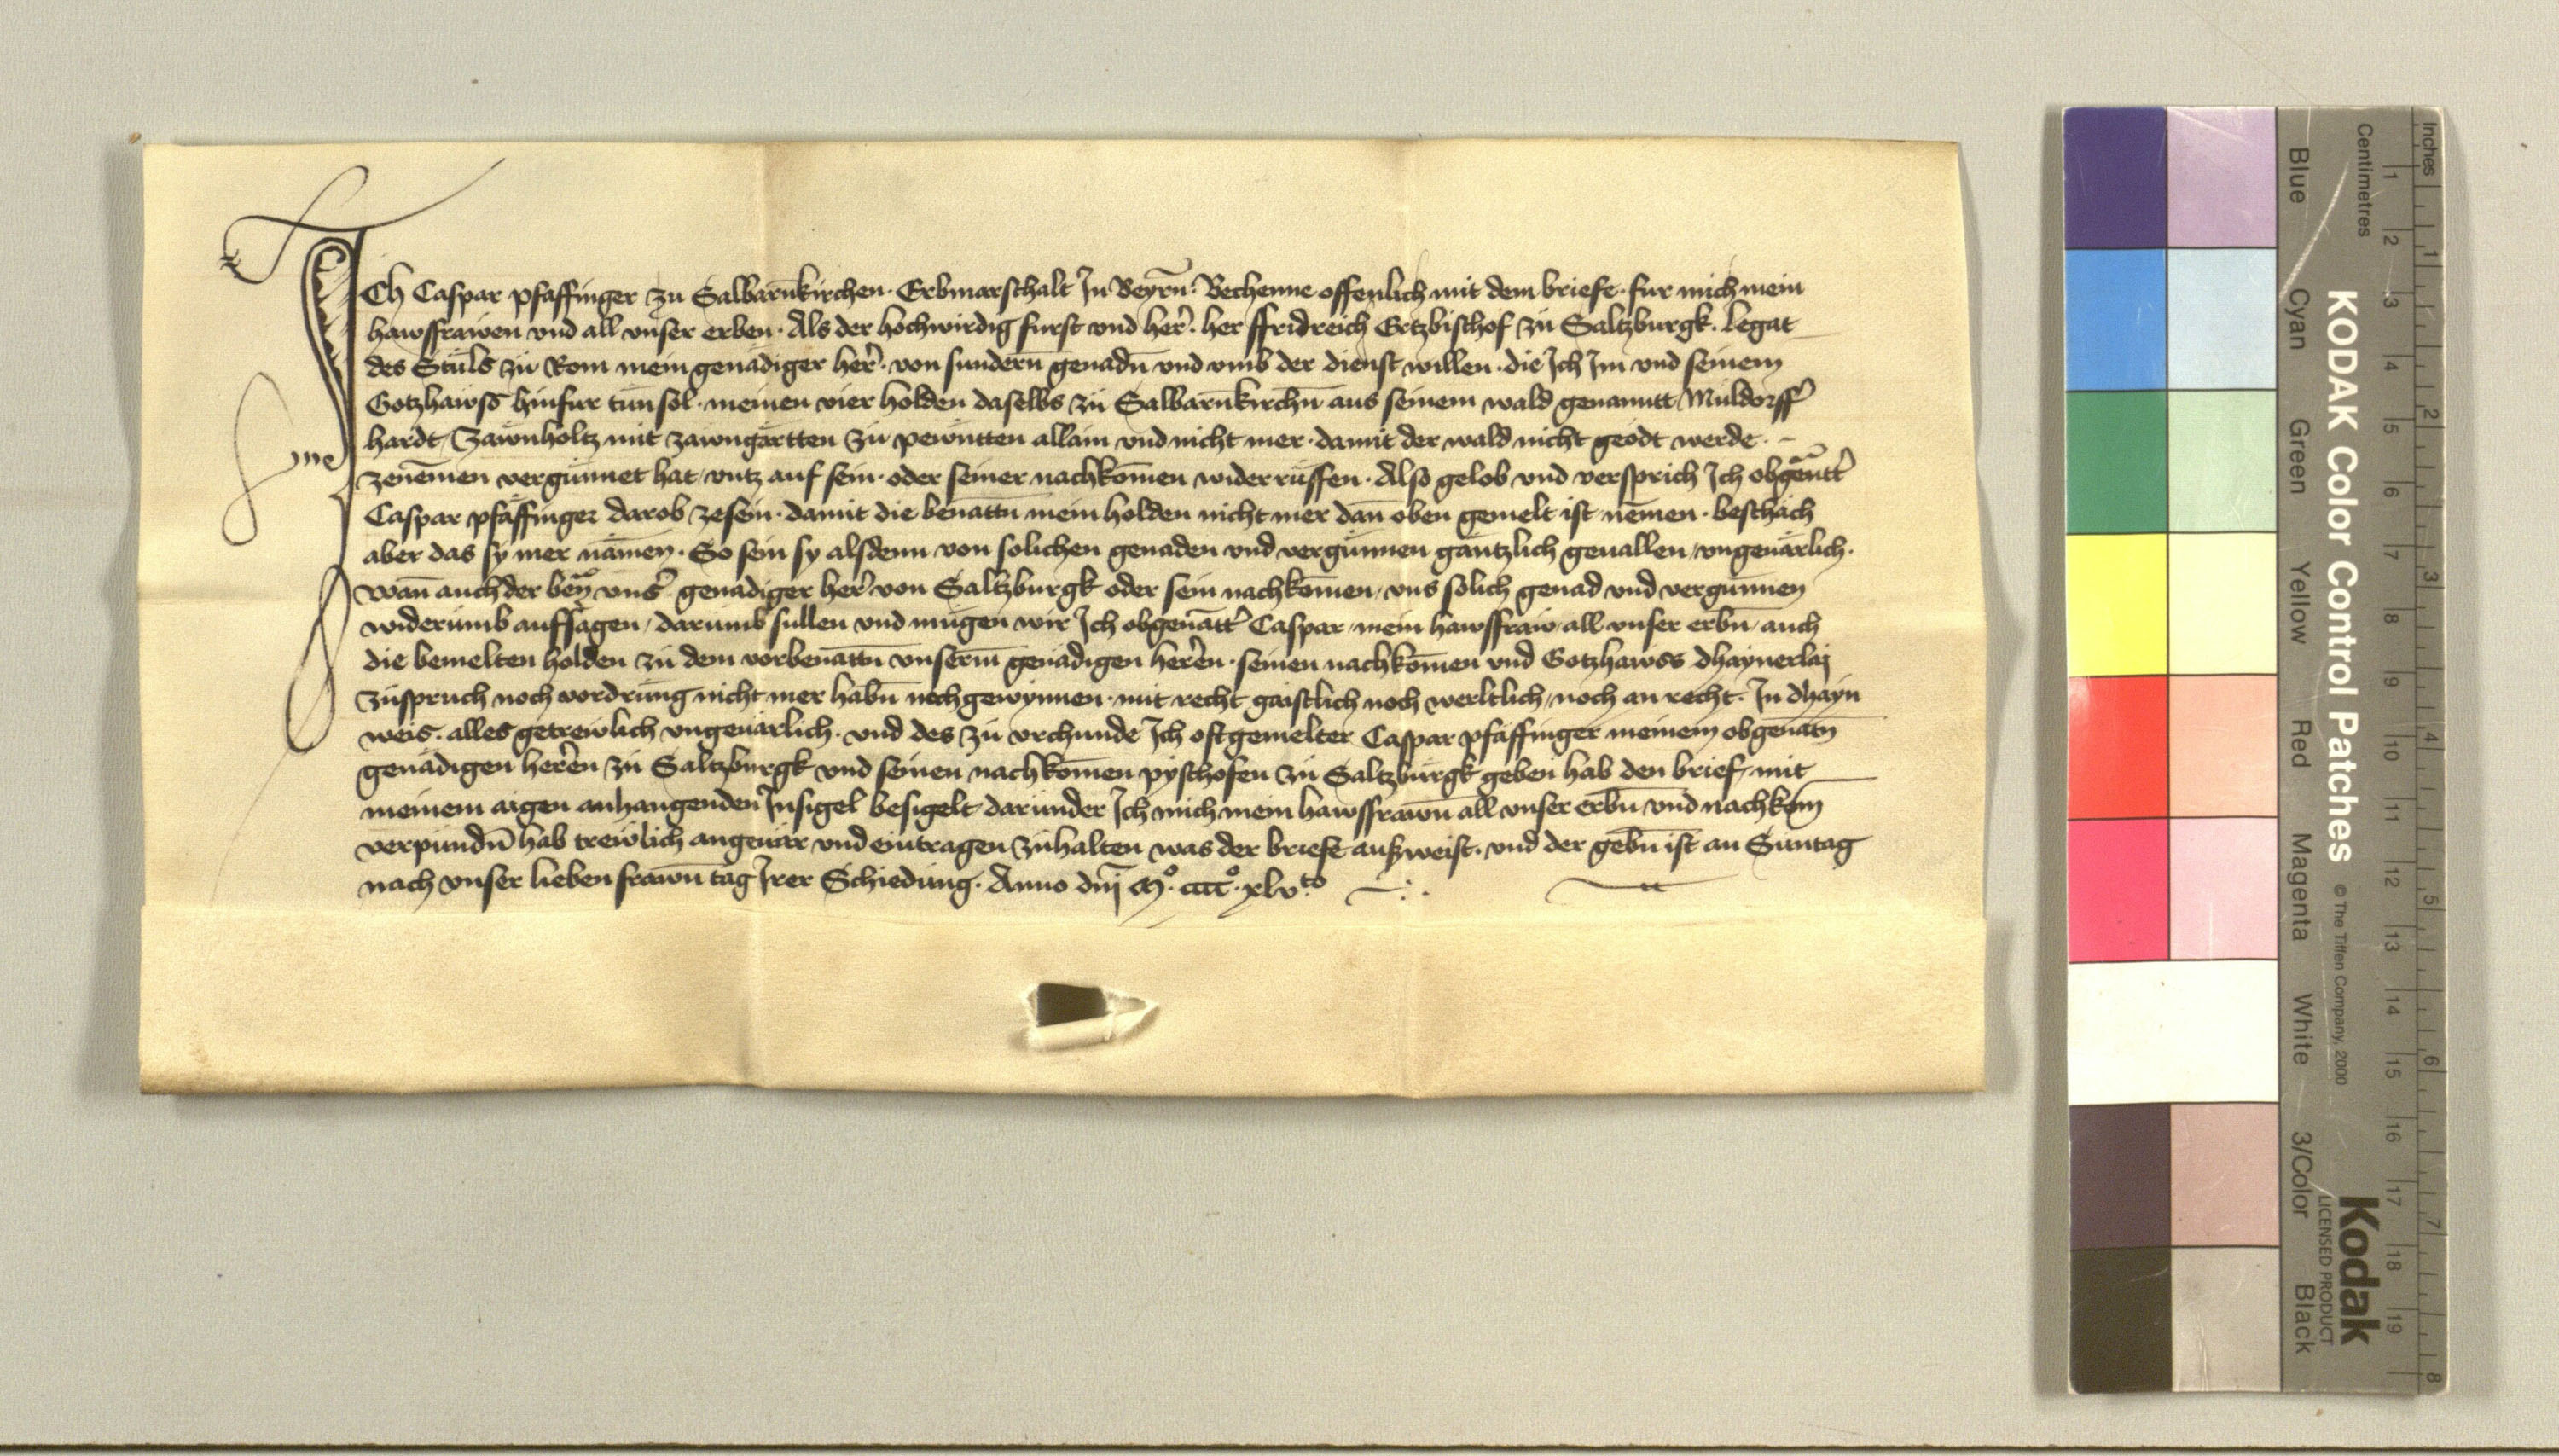 Ich Caspar pfäffinger zu Salbarn̄kirchen. Erbmarschalt In Beyrn̄. Bechenne offenlich mit dem briefe. fur mich mein
hawsfrawen vnd all vnser erben. Als der hochwirdig furst vnd her̉. her ffridreich Ertzbischof zu Saltzburgk. legat
des Stuls zu Rom mein genädiger her̉. von sundern̄ genadn̄ vnd vmb der dienst willen. die Ich Im vnd seinem
Gotzhawss hinfur tun sol. meinen vier holden daselbs zu Salbarn̄kirchn̄ aus seinem wald genanntt Müldorff̉
hardt, Zawnholtz mit zawngärtten zu pewntten allain vnd nicht mer. damit der wald nicht geödt werde.
zenemen̄ vergunnet hat, vntz auf sein. oder seiner nachkom̄en widerrüffen. Also gelob vnd versprich Ich obgen̄att̉
Caspar pfäffinger darob zesein. damit die benattn̄ mein holden nicht mer dan̄ oben gemelt ist nem̄en. beschäch
aber das sy mer näm̄en. So sein sy alsdenn von solichen genaden vnd vergünnen gäntzlich geuallen, vngeuärlich.
wan̄ auch der ben̄ vns̉ genädiger her̉ von Saltzburgk oder sein nachkom̄en, vns solich genad vnd vergunnen
widerumb auffsagen, darumb sullen vnd mügen wir Ich obgenātt̉ Caspar, mein hawsfraw, all vnser erbn̄, auch
die bemelten holden zu dem vorbenattn̄ vnserm̄ genädigen her̉en. seinen nachkom̄en vnd Gotzhawss dhaynerlaj
zuspruch noch vordrung nicht mer habn̄ noch gewynnen. mit recht gaistlich noch werltlich, noch an recht. In dhayn
weis. alles getrewlich vngeuärlich. vnd des zu vrchunde Ich oftgemelter Caspar pfäffinger meinem obgenatn̄
genädigen her̉en zu Saltzburgk vnd seinen nachkom̄en pyschofen zu Saltzburgk geben hab den brief, mit
meinem aigen anhangenden Insigel besigelt darunder Ich mich mein hawsfrawn̄ all vnser erbn̄ vnd nachkom̄
verpundn̄ hab trewlich angeuär vnd eintragen zuhalten was der briefe außweist. vnd der gebn̄ ist an Suntag
nach vnser lieben frawn̄ tag Irer Schiedung. Anno dn̄i Mo. ccccо. xlvto
KODAK Color Control Patches © The Tiffen Company, 2000
Kodak
LICENSED PRODUCT
Blue Cyan Green Yellow Red Magenta White 3/Color Black
Centimetres 1 2 3 4 5 6 7 8 9 10 11 12 13 14 15 16 17 18 19
Inches 1 2 3 4 5 6 7 8